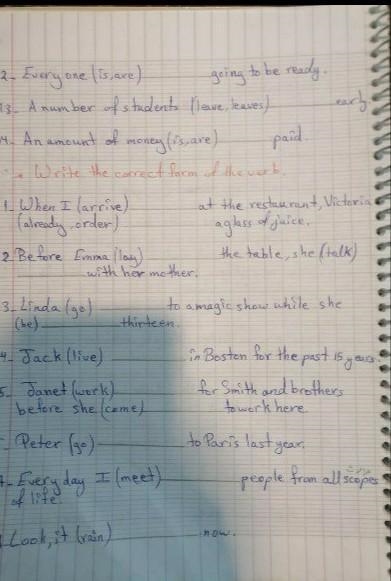 2- Everyone (is, are) going to be ready.
13- A number of students (leave, leaves) early.
14- An amount of money (is, are) paid.
Write the correct form of the verb.
1- When I (arrive) at the restaurant, Victoria
(already, order) a glass of juice.
2- Before Emma (lay) the table, she (talk)
with her mother.
3- Linda (go) to a magic show while she
(be) thirteen.
4- Jack (live) in Boston for the past 15 years.
5- Janet (work) for Smith and brothers
before she (come) to work here.
- Peter (go) to Paris last year.
7- Every day I (meet) people from all scopes
of life.
Look, it (rain) now.